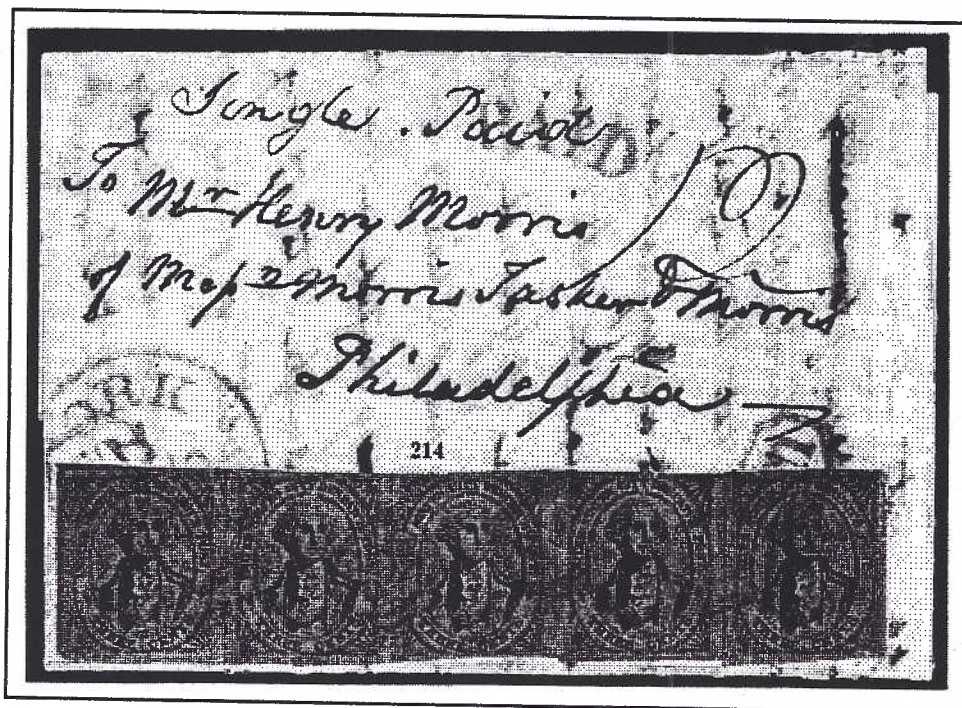 Single . Paid
To Mr Henry Morris
of Mess rs Morris Tasker & Morris
Philadelphia
ORK
214